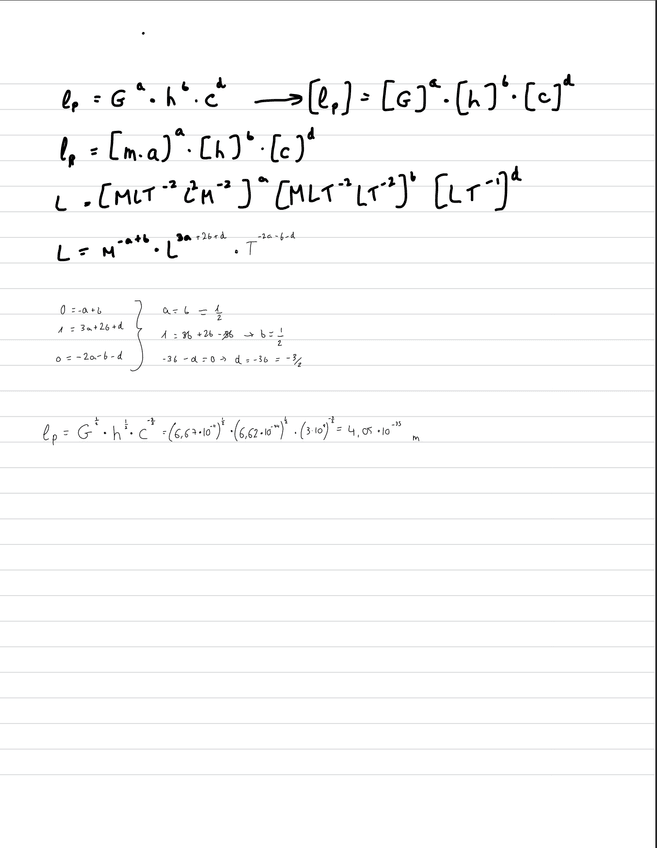 l_p = G^a · h^b · c^d ⟶ [l_p] = [G]^a · [h]^b · [c]^d
l_p = [m·a]^a · [h]^b · [c]^d
L = [MLT^-2 L^2 M^-2]^a [MLT^-2 LT^-2]^b [LT^-1]^d
L = M^-a+b · L^3a+2b+d · T^-2a-b-d
0 = -a+b } a = b = 1/2
1 = 3a+2b+d 1 = 3b+2b-3b → b = 1/2
0 = -2a-b-d -3b-d = 0 → d = -3b = -3/2
l_p = G^1/2 · h^1/2 · c^-3/2 = (6,67·10^-11)^1/2 · (6,62·10^-34)^1/2 · (3·10^8)^-3/2 = 4,05·10^-35 m